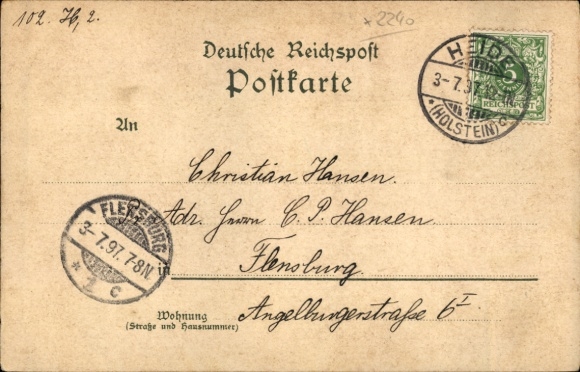 102. H, 2.
x 2240
Deutsche Reichspost
Postkarte
HEIDE
3-7.97.
(HOLSTEIN) c
5
REICHSPOST
An
Christian Hansen.
Adr. Herrn C. P. Hansen.
FLENSBURG
3-7.97. 7-8N.
* 2 c
in Flensburg.
Wohnung
(Straße und Hausnummer)
Angelburgerstraße 6 I